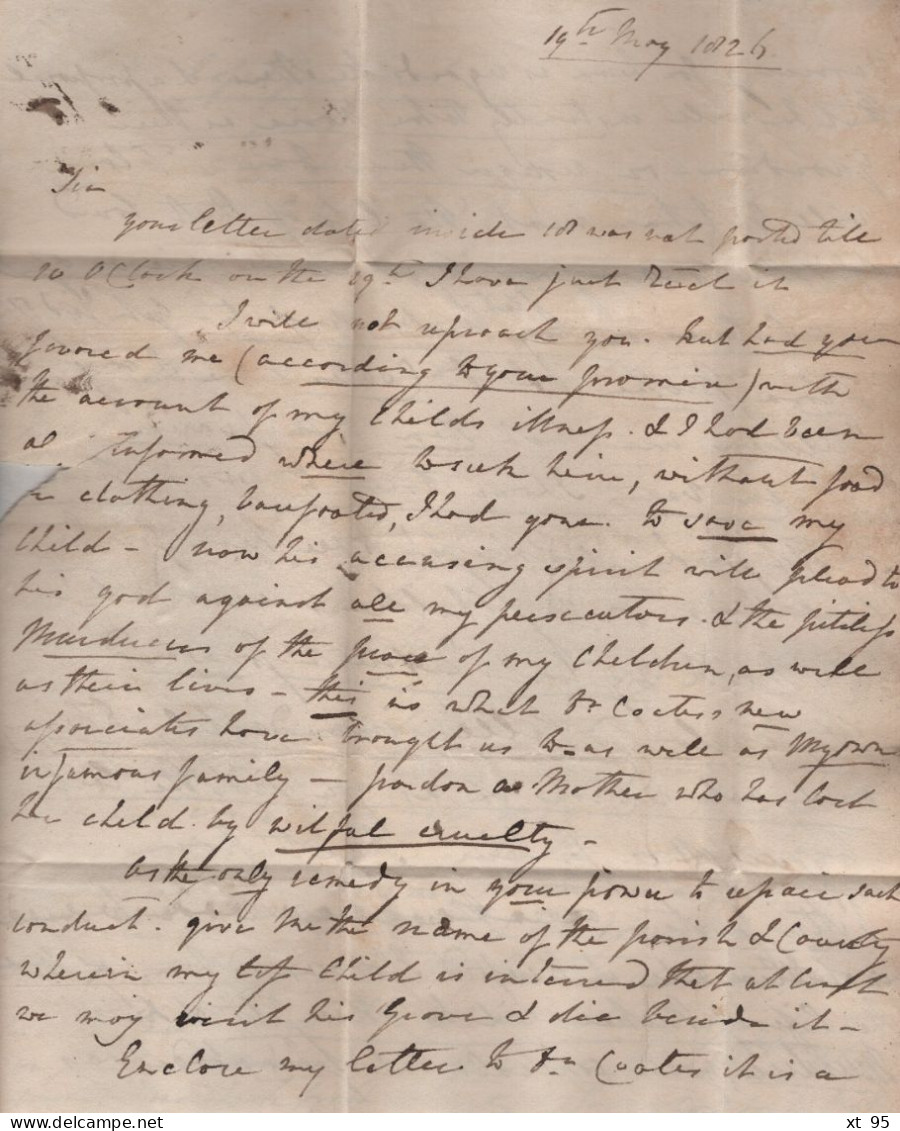 19th May 1826
Sir
your letter dated inside 18 was not posted till
10 O Clock on the 19th I have just Recd it
I will not reproach you. but had you
favored me (according to your promise) with
the account of my Childs illness. & I had been
informed where to seek him, without food
or clothing, barefooted, I had gone. to save my
Child – now his accusing spirit will plead to
his god against all my persecutors. & the pitiless
Murderers of the peace of my Children, as well
as their lives – this is what Dr Coates's new
associates have brought us to – as well as My own
infamous family – pardon a Mother who has lost
her child by wilful cruelty –
as the only remedy in your power to repair such
conduct. give me the name of the parish & County
wherein my Child is interred that at least
we may visit his Grave & die beside it –
Enclose my letter to Dr Coates it is a
xt 95